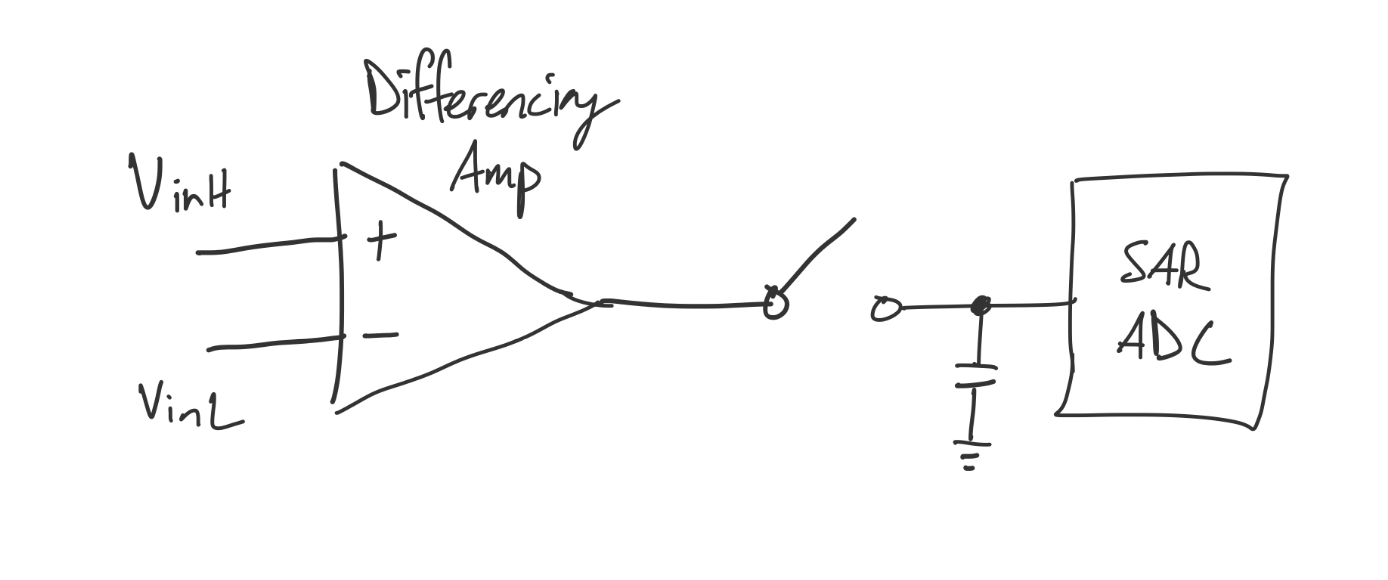 Differencing
Amp
VinH
+
−
VinL
SAR
ADC